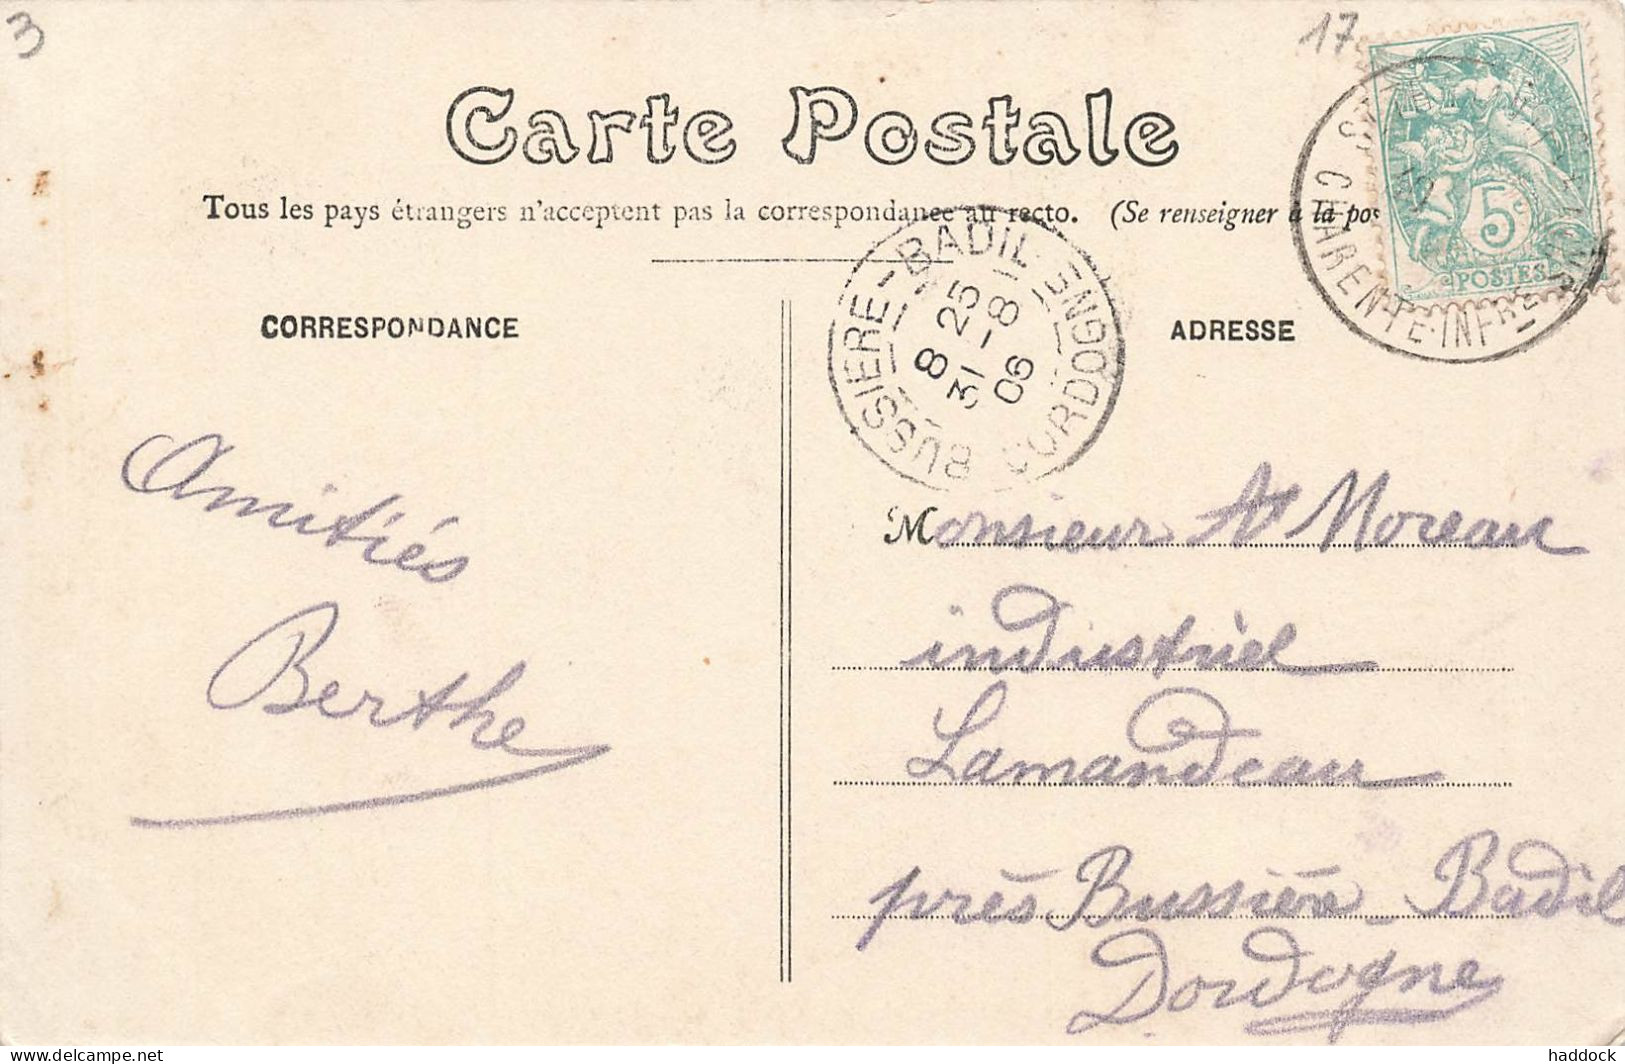 3
17
Carte Postale
Tous les pays étrangers n'acceptent pas la correspondance au recto. (Se renseigner à la pos
CORRESPONDANCE
ADRESSE
5c
POSTES
CHARENTE-INFRE
BUSSIÈRE-BADIL
DORDOGNE
8 25
31-8
06
Amitiés
Berthe
Monsieur A Moreau
industriel
Lamandeau
près Bussière Badil
Dordogne
© delcampe.net
haddock